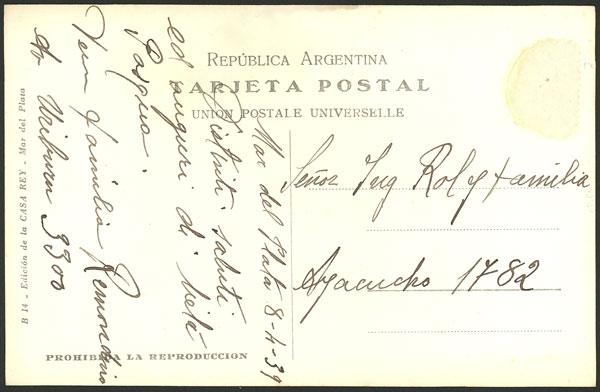 REPÚBLICA ARGENTINA
TARJETA POSTAL
UNION POSTALE UNIVERSELLE
Mar del Plata 8-4-39
Distinti saluti
ed auguri di lieta
Pasqua.
Familia
Av Uriburu 3300
Señor Ing Rol y familia
Ayacucho 1782
B 14 - Edición de la CASA REY - Mar del Plata
PROHIBIDA LA REPRODUCCION